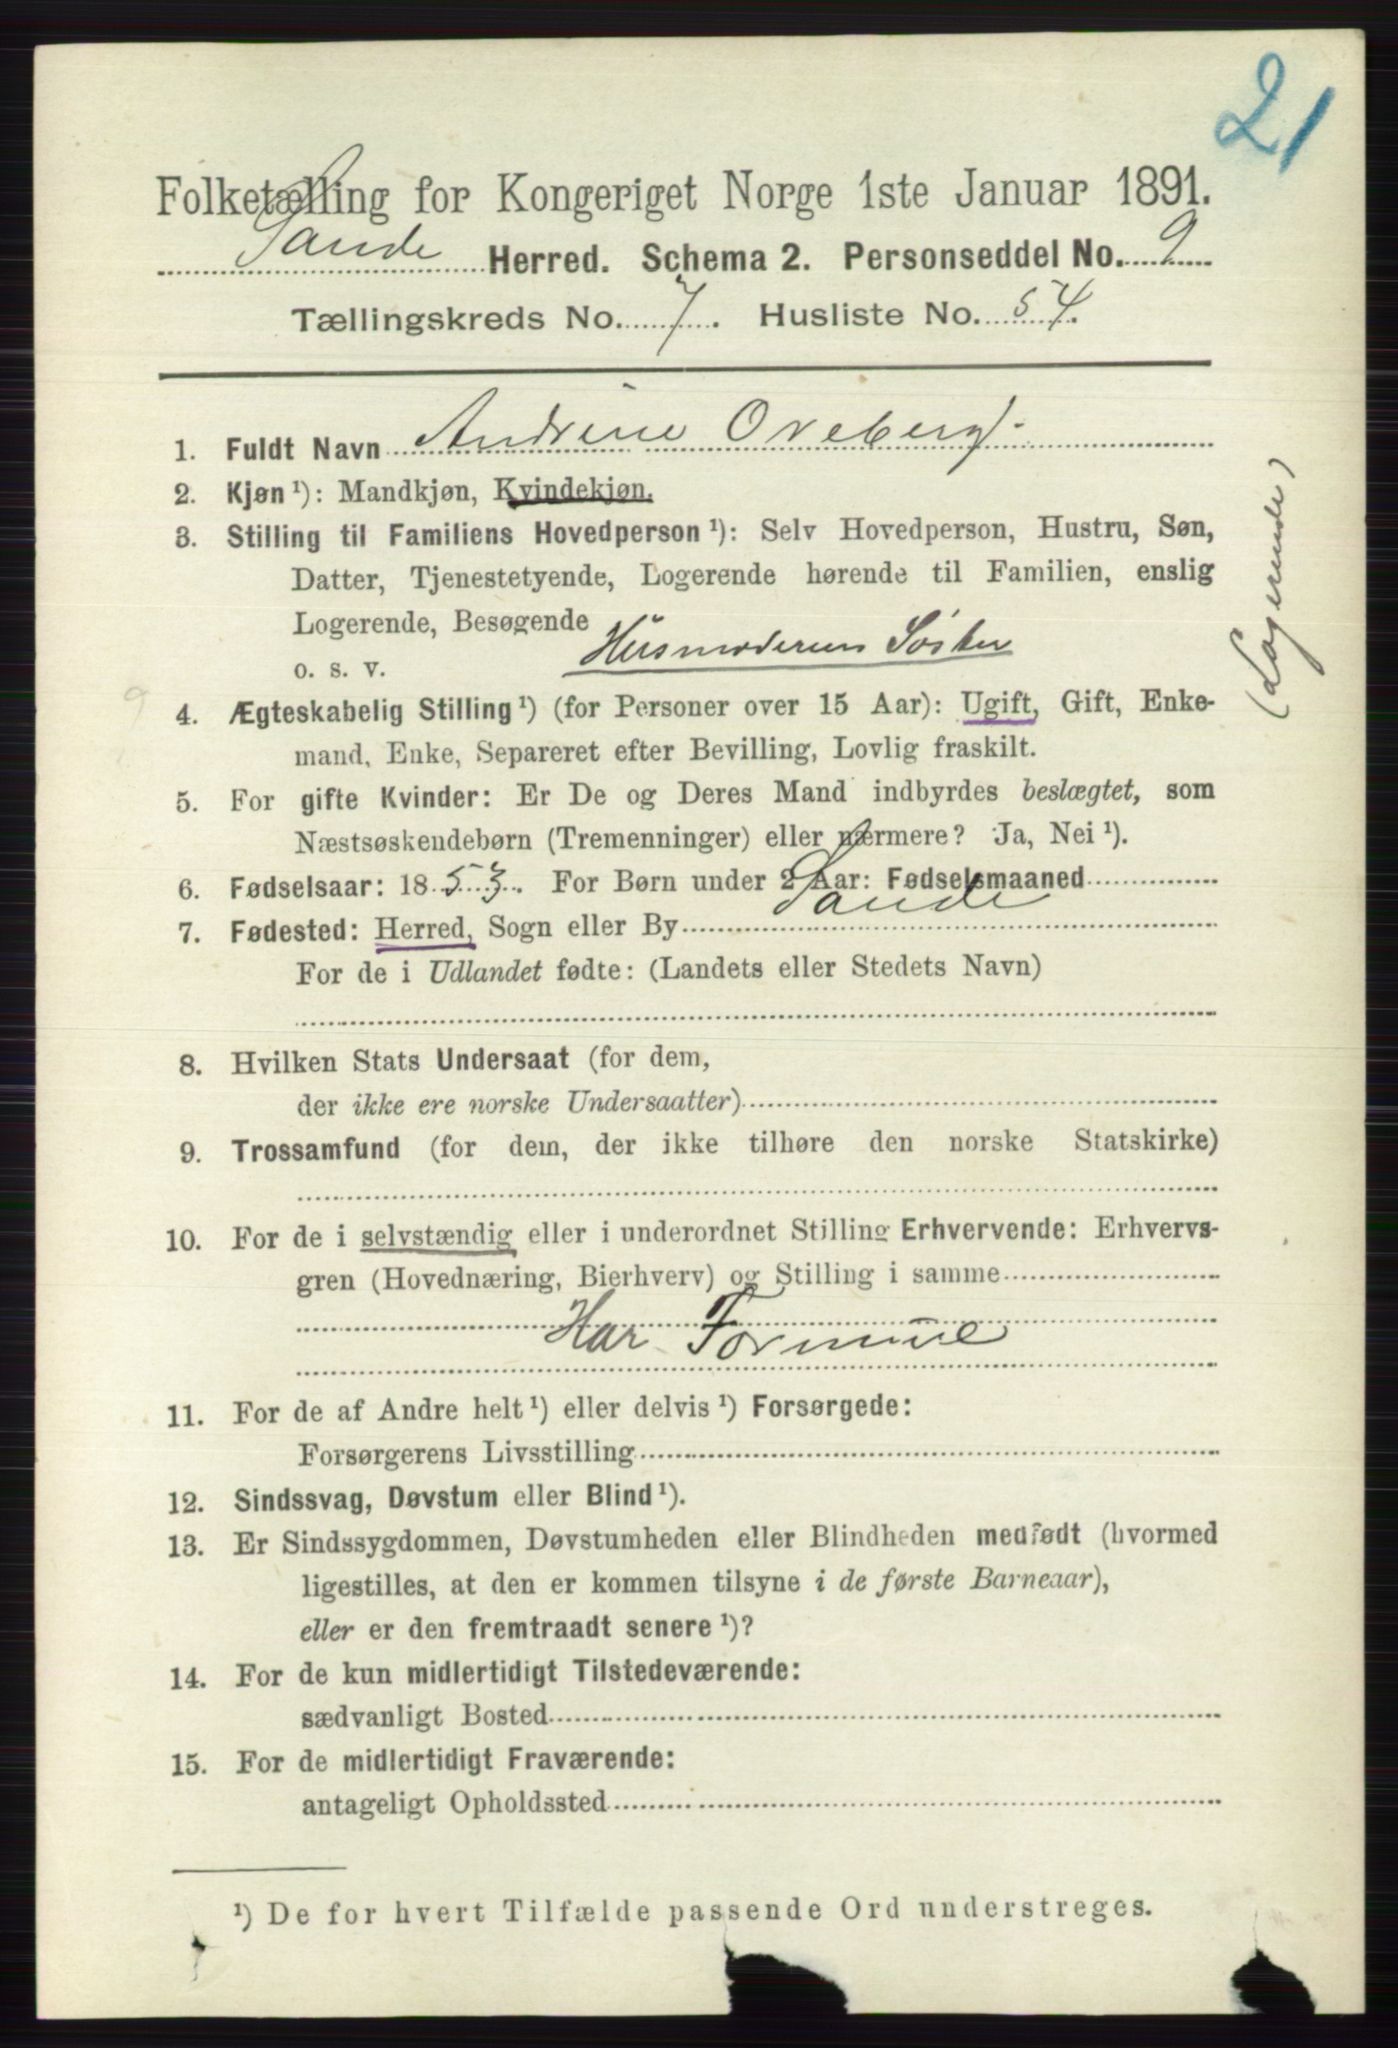 21
Folketælling for Kongeriget Norge 1ste Januar 1891.
Sande Herred. Schema 2. Personseddel No. 9
Tællingskreds No. 7. Husliste No. 54.
1. Fuldt Navn Andrine Oreberg.
2. Kjøn ¹): Mandkjøn, Kvindekjøn.
3. Stilling til Familiens Hovedperson ¹): Selv Hovedperson, Hustru, Søn,
Datter, Tjenestetyende, Logerende hørende til Familien, enslig
Logerende, Besøgende
o. s. v. Husmoderens Søster
(Logerende)
4. Ægteskabelig Stilling ¹) (for Personer over 15 Aar): Ugift, Gift, Enke-
mand, Enke, Separeret efter Bevilling, Lovlig fraskilt.
9
5. For gifte Kvinder: Er De og Deres Mand indbyrdes beslægtet, som
Næstsøskendebørn (Tremenninger) eller nærmere? Ja, Nei ¹).
6. Fødselsaar: 1853. For Børn under 2 Aar: Fødselsmaaned
7. Fødested: Herred, Sogn eller By Sande
For de i Udlandet fødte: (Landets eller Stedets Navn)
8. Hvilken Stats Undersaat (for dem,
der ikke ere norske Undersaatter)
9. Trossamfund (for dem, der ikke tilhøre den norske Statskirke)
10. For de i selvstændig eller i underordnet Stilling Erhvervende: Erhvervs-
gren (Hovednæring, Bierhverv) og Stilling i samme
Har Formue
11. For de af Andre helt ¹) eller delvis ¹) Forsørgede:
Forsørgerens Livsstilling
12. Sindssvag, Døvstum eller Blind ¹).
13. Er Sindssygdommen, Døvstumheden eller Blindheden medfødt (hvormed
ligestilles, at den er kommen tilsyne i de første Barneaar),
eller er den fremtraadt senere ¹)?
14. For de kun midlertidigt Tilstedeværende:
sædvanligt Bosted
15. For de midlertidigt Fraværende:
antageligt Opholdssted
¹) De for hvert Tilfælde passende Ord understreges.